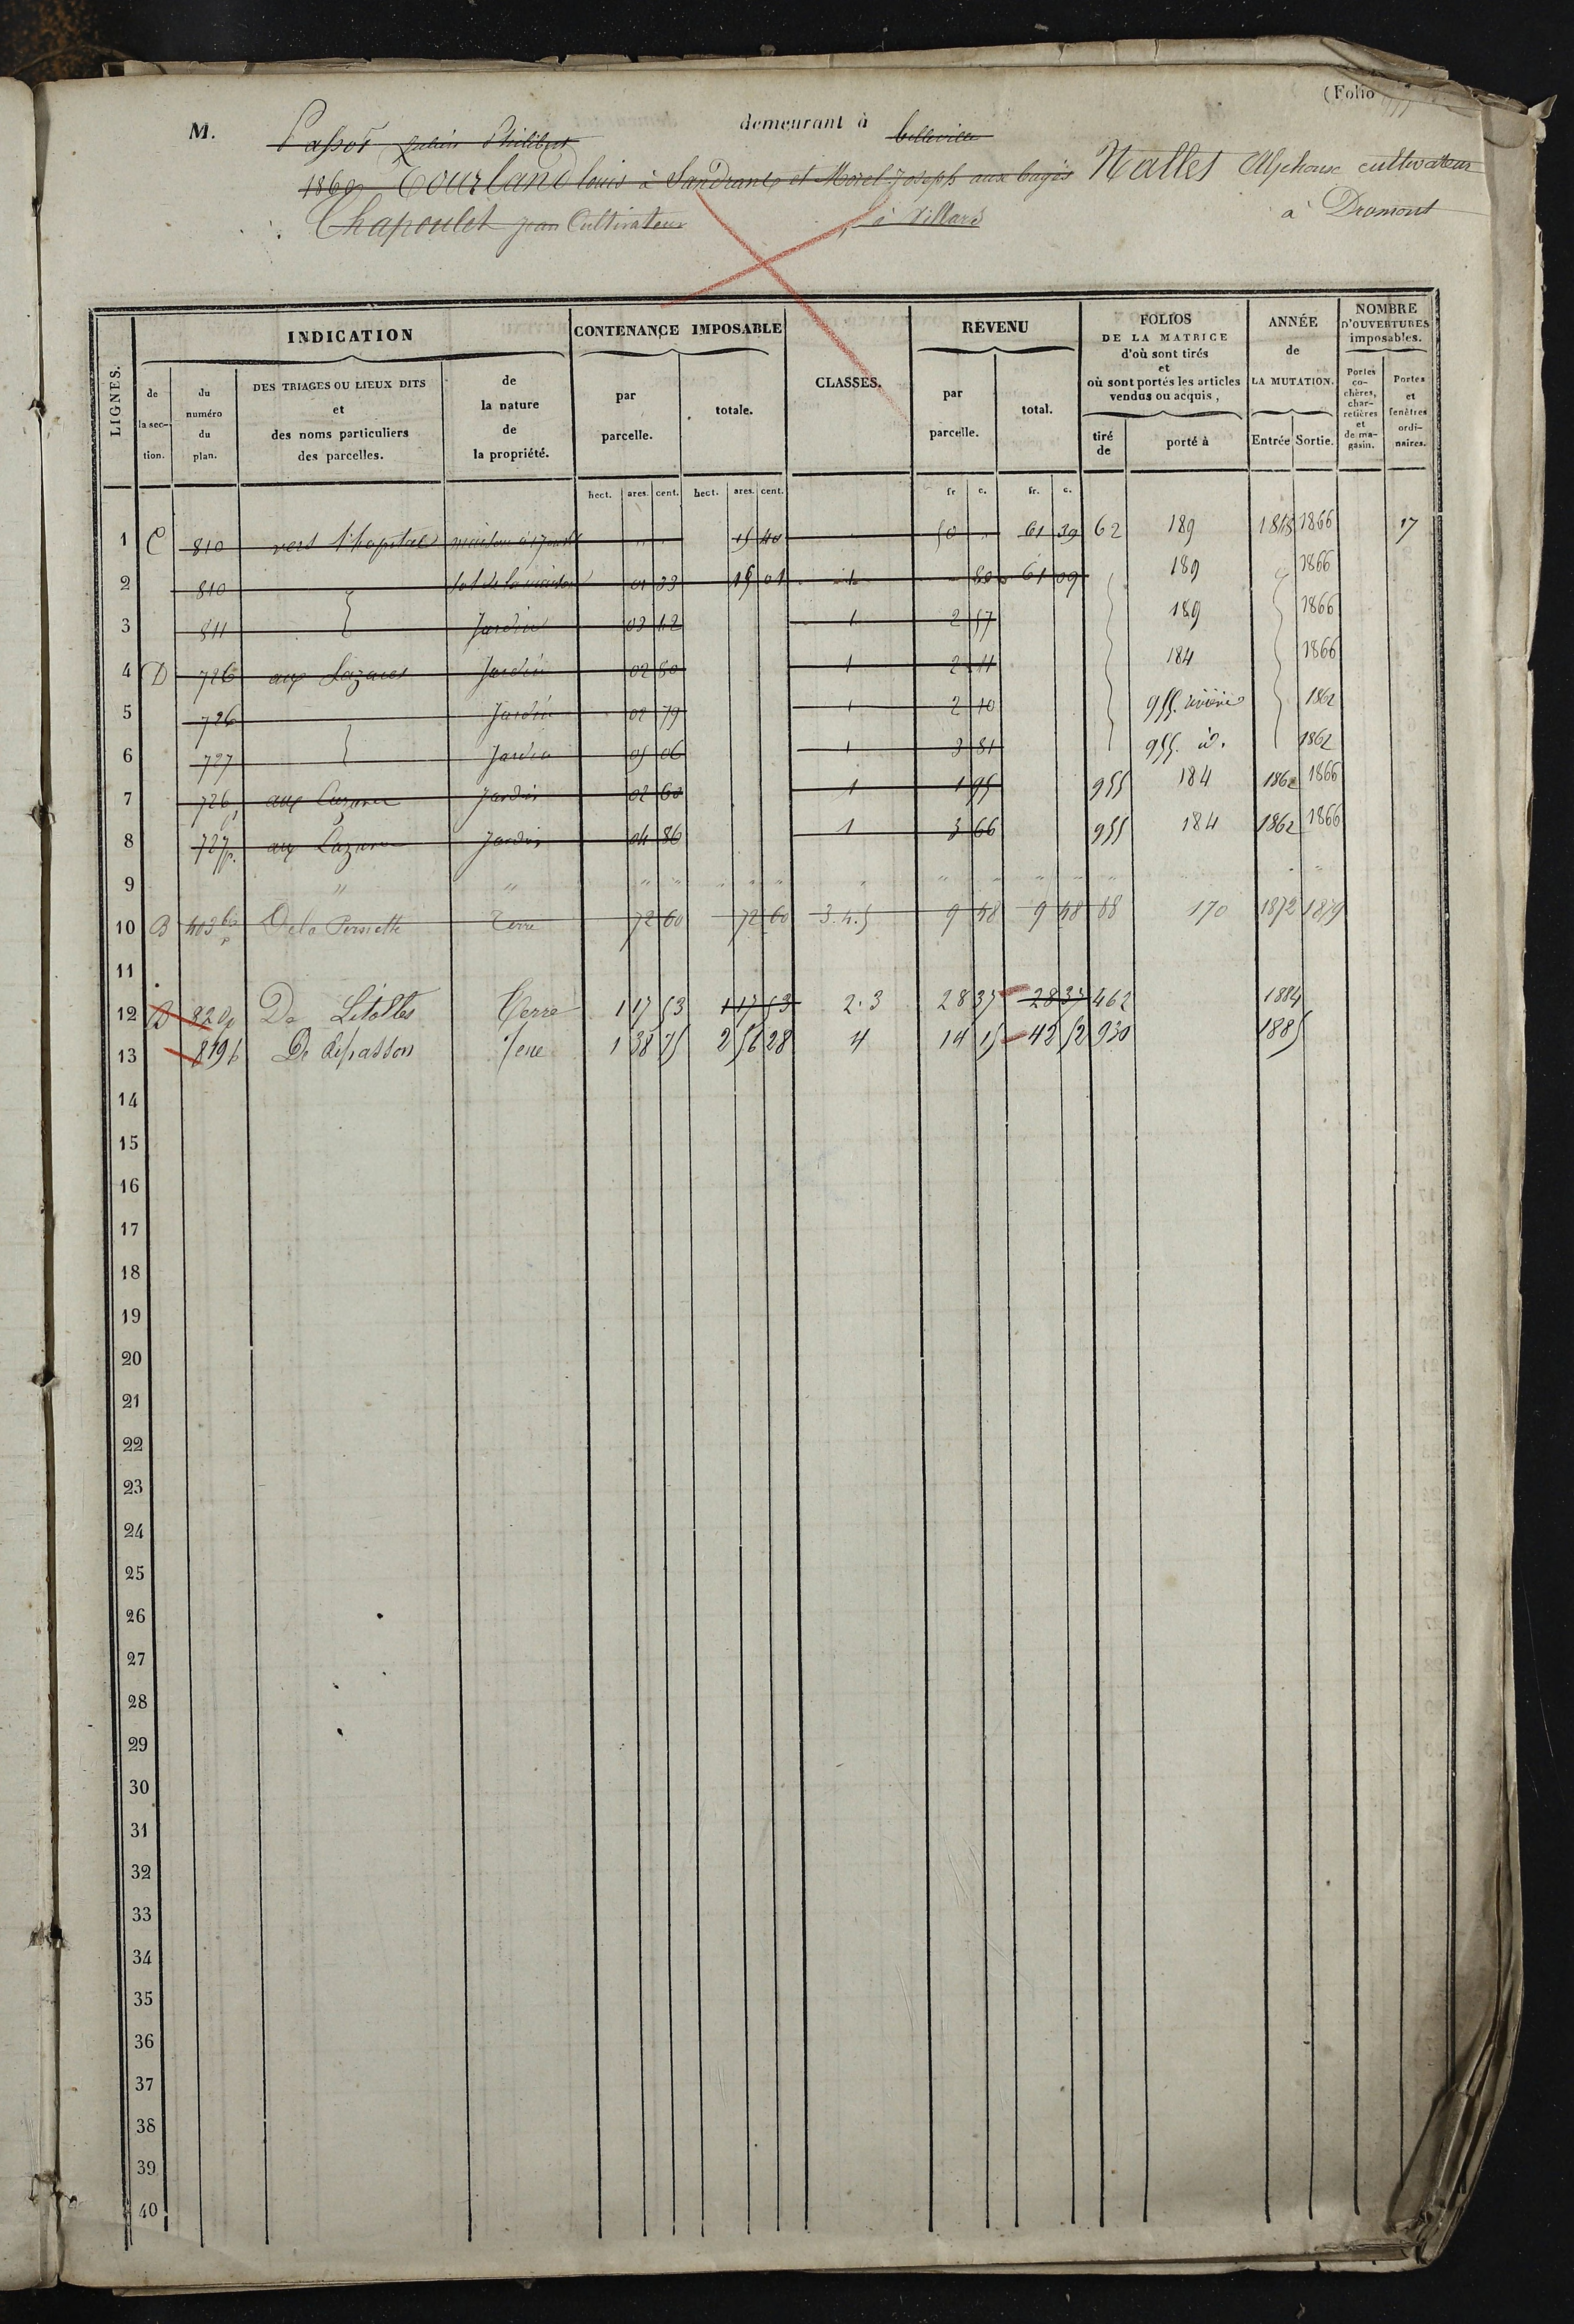 (Folio
M. Passot Philibert demeurant à belleville
1869 Tourland louis à Sandrans et Morel Joseph aux bages Nallet Alphonse cultivateur
Chapoulet jean Cultivateur à Villars à Dromont
LIGNES. INDICATION CONTENANCE IMPOSABLE CLASSES. REVENU FOLIOS DE LA MATRICE d'où sont tirés et où sont portés les articles vendus ou acquis, ANNÉE de LA MUTATION. NOMBRE D'OUVERTURES imposables.
de la section. du numéro du plan. DES TRIAGES OU LIEUX DITS et des noms particuliers des parcelles. de la nature de la propriété. par parcelle. totale. par parcelle. total. tiré de porté à Entrée Sortie. Portes cochères, charretières et de magasin. Portes et fenêtres ordinaires.
hect. ares. cent. hect. ares. cent. fr c. fr. c.
1 C 810 vers l'hopital maison 15 40 50 " 61 39 62 189 1866 17
2 810 sol de la maison 01 33 15 01 1 80 61 09 189 1866
3 811 Jardin 03 12 1 2 57 189 1866
4 D 726 aux Lazares Jardin 02 80 1 2 11 184 1866
5 726 Jardin 02 79 1 2 10 955 1862
6 727 Jardin 05 06 1 3 81 955 id. 1862
7 726 p aux Lazares Jardin 02 60 1 1 95 955 184 1862 1866
8 727 p. aux Lazares Jardin 04 86 1 3 66 955 184 1862 1866
9 " " " " " " " " " " " " "
10 B 403 bis p De la Pernette Terre 72 60 72 60 3.4.5 9 48 9 48 88 170 1872 1879
11
12 B 820 p De Litolles Terre 1 17 53 1 17 53 2.3 28 37 28 37 462 1884
13 819 p De Lépasson Terre 1 38 75 2 56 28 4 14 15 42 52 930 1885
14
15
16
17
18
19
20
21
22
23
24
25
26
27
28
29
30
31
32
33
34
35
36
37
38
39
40